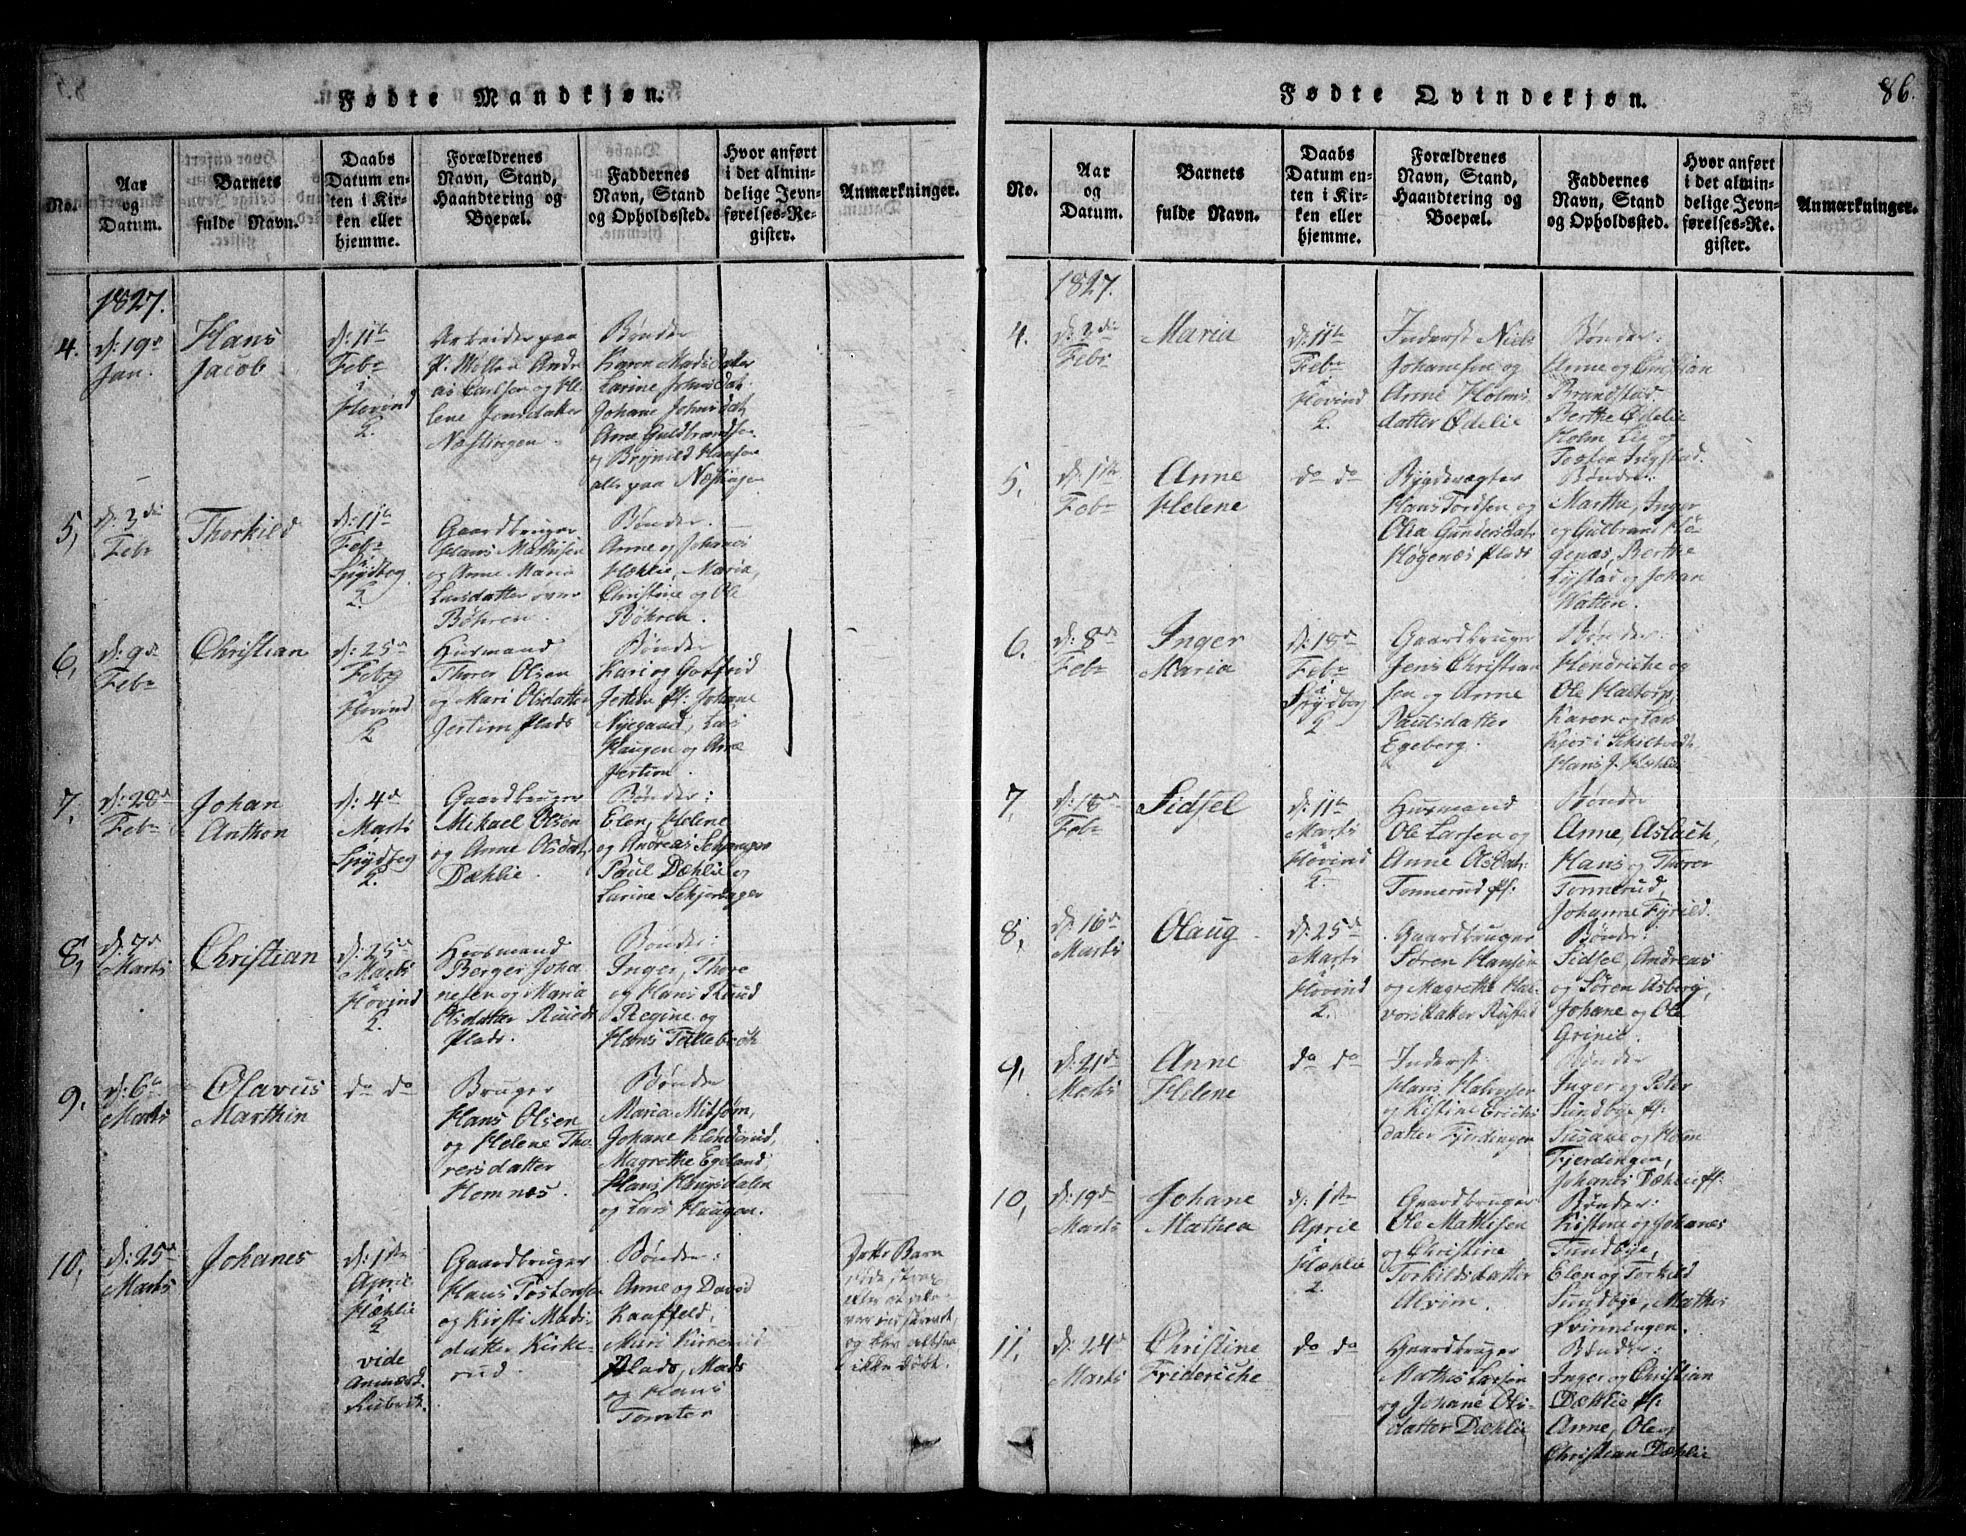 Fødte Mandkjøn.
No.
Aar og Datum.
Barnets fulde Navn.
Daabs Datum enten i Kirken eller hjemme.
Forældrenes Navn, Stand, Haandtering og Boepæl.
Faddernes Navn, Stand og Opholdssted.
Hvor anført i det almindelige Jevnførelses-Register.
Anmærkninger.
1827.
4.
d: 19d
Jan.
Hans
Jacob
d: 11te
Febr
i
Hovind
2.
Arbeider paa
Andre
as Carlsen og He
lene Jonsdatter
Næslingen.
Bønder
Karen Madsdatter
Larine Johnsdat.
Johane Johnsdat.
Anne Guldbrandsen
og Brynild Hansen
alle paa Næslingen
5,
d: 3die
Febr
Thorkild
d: 11te
Febr
Spydbeg
2.
Gaardbruger
Hans Mathisen
og Anne Maria
Larsdatter øvre
Bøhren.
Bønder.
Anne og Johanes
Hæhlie, Maria,
Christine og Ole
Bøhren.
6,
d: 9de
Febr
Christian
d: 25d
Febr
Hovind
2
Huusmand
Thorer Olsen
og Mari Olsdatter
Jertim Plads
Bønder
Kari og Gotfrid
Johane
Nyegaard, Lars
Haugen og Anne
Jertim.
7,
d: 28d
Febr
Johan
Anthon
d: 4d
Marts
Spydbeg
2.
Gaardbruger
Mikael Olsen
og Anne Olsdat.
Dæhlie.
Bønder:
Elen, Helene
og Andreas
Paul Dæhlie og
Larine
8,
d: 7d
Marts
Christian
d: 25d
Marts
Hovind
2.
Huusmand
Borger Joha
nesen og Maria
Olsdatter Ruuds
Plads.
Bønder:
Inger, Thore
og Hans Ruud
Regine og
Hans Tillebrok
9.
d: 6te
Marts
Olavus
Marthin
do do
Bruger
Hans Olsen
og Helene Tho-
rersdatter
Homnæs.
Bønder
Maria Midsøm,
Johane
Magrethe Egeland,
Hans Haugsdalen
og Lars Haugen.
10,
d: 25d
Marts
Johanes
d: 1ste
April
Hæhlie
2
vide
Anmærk.
Rubrik.
Gaardbruger
Hans Tostensen
og Kirsti Mads-
datter Kirke-
rud.
Bønder:
Anne og David
Kaaffeld,
Mari Kirkerud
Plads, Mads
og Hans
Tomter
Dette Barn
og blev altsaa
ikke døbt.
Fødte Qvindekjøn.
86.
No.
Aar og Datum.
Barnets fulde Navn.
Daabs Datum enten i Kirken eller hjemme.
Forældrenes Navn, Stand, Haandtering og Boepæl.
Faddernes Navn, Stand og Opholdssted.
Hvor anført i det almindelige Jevnførelses-Register.
Anmærkninger.
1827.
4.
d: 2die
Febr
Maria
d: 11te
Febr
i
Hovind
2.
Inderst Niels
Johansen og
Anne Holms
datter Ødelie
Bønder:
Anne og Christian
Brandstad.
Berthe Ødelie
Holm Lie og
Tosten Ingstad.
5,
d: 1ste
Febr
Anne
Helene
do do
Bygdevægter
Hans Tordsen og
Olia Gundersdat.
Høgenæs Plads
Bønder:
Marthe, Inger
og Gulbrand Hø
genæs, Berthe
Lystad og Johan
Watten.
6.
d: 8de
Febr
Inger
Maria
d: 18d
Febr
i
Spydbeg
2
Gaardbruger
Jens Christian
sen og Anne
Paulsdatter
Egeberg.
Bønder:
Hendriche og
Ole Hattorp,
Karen og Lars
Kjos i Schiltvedt
Hans J. Hæhlie
7,
d: 18d
Febr
Sidsel
d: 11te
Marts
Hovind
2.
Huusmand
Ole Larsen og
Anne Olsdat.
Tonnerud Pl:
Bønder
Anne, Aslach,
Hans og Thorer
Tonnerud,
Johanne Fyrild.
8,
d: 16d
Marts
Olaug
d: 25d
Marts
Hovind
2.
Gaardbruger
Søren Hansen
og Magrethe Hal
vorsdatter Rustad
Bønder:
Sidsel, Andreas
og Søren Asberg,
Johane og Ole
Grinie.
9,
d: 21d
Marts
Anne
Helene
do do
Inderst.
Hans Halvorsen
og Kistine Erichs
datter Fjerdingen
Bønder
Inger og Peter
Sundbye Pl:
Susane og Holm
Fjerdingen,
Johanes Dæhlie Pl:
10,
d: 19d
Marts
Johane
Mathea
d: 1ste
April
i
Hæhlie
2
Gaardbruger
Ole Mathisen
og Christine
Torkildsdatter
Alvim.
Bønder:
Kistene og Johanes
Sundbye,
Elen og Torkild
Sundbye, Mathis
Qvinningen.
11.
d: 24d
Marts
Christine
Friderriche
do do
Gaardbruger
Mathis Larsen
og Johane Ols-
datter Dæhlie
Bønder:
Inger og Christian
Dæhlie Pl:
Anne, Ole og
Christian Dæhlie